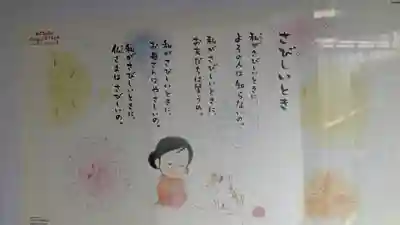 さびしいとき
私がさびしいときに、
よその人は知らないの。
私がさびしいときに、
お友だちは笑うの。
私がさびしいときに、
お母さんはやさしいの。
私がさびしいときに、
仏さまはさびしいの。